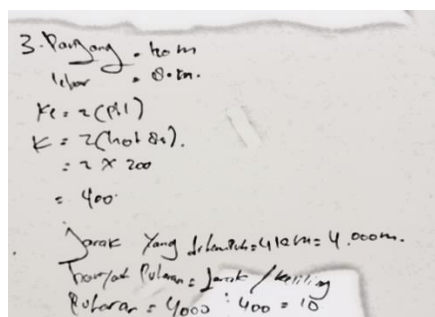 3. Panjang = 120 m
lebar = 80 m.
Kll = 2(p+l)
K = 2(120+80).
= 2 x 200
= 400
Jarak Yang ditempuh = 4 km = 4.000m.
banyak Putaran = Jarak / keliling
Putaran = 4000 : 400 = 10